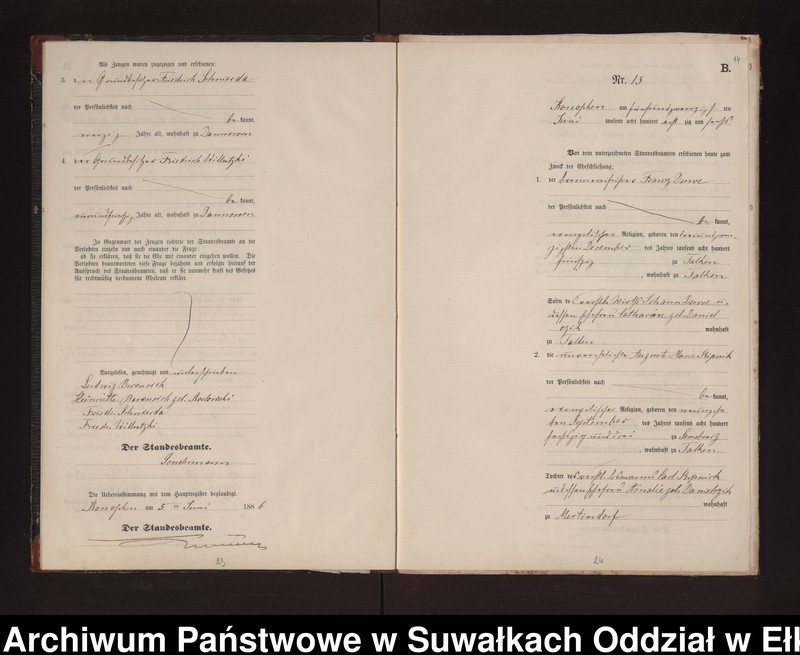 Als Zeugen waren zugezogen und erschienen:
3. der Grundbesitzer Friedrich Schmierda
der Persönlichkeit nach
be kannt,
Jahre alt, wohnhaft zu Dannowen
4. der Grundbesitzer Friedrich Willutzki
der Persönlichkeit nach
be kannt,
Jahre alt, wohnhaft zu Dannowen
In Gegenwart der Zeugen richtete der Standesbeamte an die
Verlobten einzeln und nach einander die Frage:
ob sie erklären, daß sie die Ehe mit einander eingehen wollen. Die
Verlobten beantworteten diese Frage bejahend und erfolgte hierauf der
Ausspruch des Standesbeamten, daß er sie nunmehr kraft des Gesetzes
für rechtmäßig verbundene Eheleute erkläre.
Vorgelesen, genehmigt und unterschrieben
Ludwig
Heinriette geb.
Friedr. Schmierda
Friedr. Willutzki
Der Standesbeamte.
Die Uebereinstimmung mit dem Hauptregister beglaubigt.
Konopken am 5ten Juni 1886
Der Standesbeamte.
23
14
B.
Nr. 13
Konopken am fünfundzwanzigsten ten
Juni tausend acht hundert acht zig und sechs
Vor dem unterzeichneten Standesbeamten erschienen heute zum
Zweck der Eheschließung:
1. der Franz
der Persönlichkeit nach
be kannt,
evangelischer Religion, geboren den
zigsten Dezember des Jahres tausend acht hundert
fünfzig zu Talken
, wohnhaft zu Talken
Sohn des Wirths Johann
dessen Ehefrau Catharine geb. Daniel
ozik wohnhaft
zu Talken
2. die unverehelichte Auguste Marie Skipnik
der Persönlichkeit nach
be kannt,
evangelischer Religion, geboren den neunzehn
ten September des Jahres tausend acht hundert
sechszig und drei zu Sensburg
, wohnhaft zu Talken
Tochter des Carl Skipnik
und dessen Ehefrau Amalie geb. Danielozik
wohnhaft
zu Mertinsdorf
24
Archiwum Państwowe w Suwałkach Oddział w Ełk